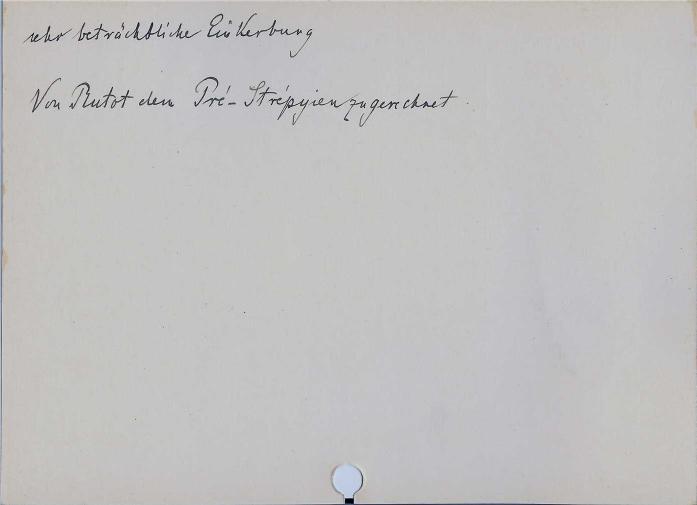 sehr beträchtliche Einkerbung
Von Rutot dem Pré-Strépyien zugerechnet